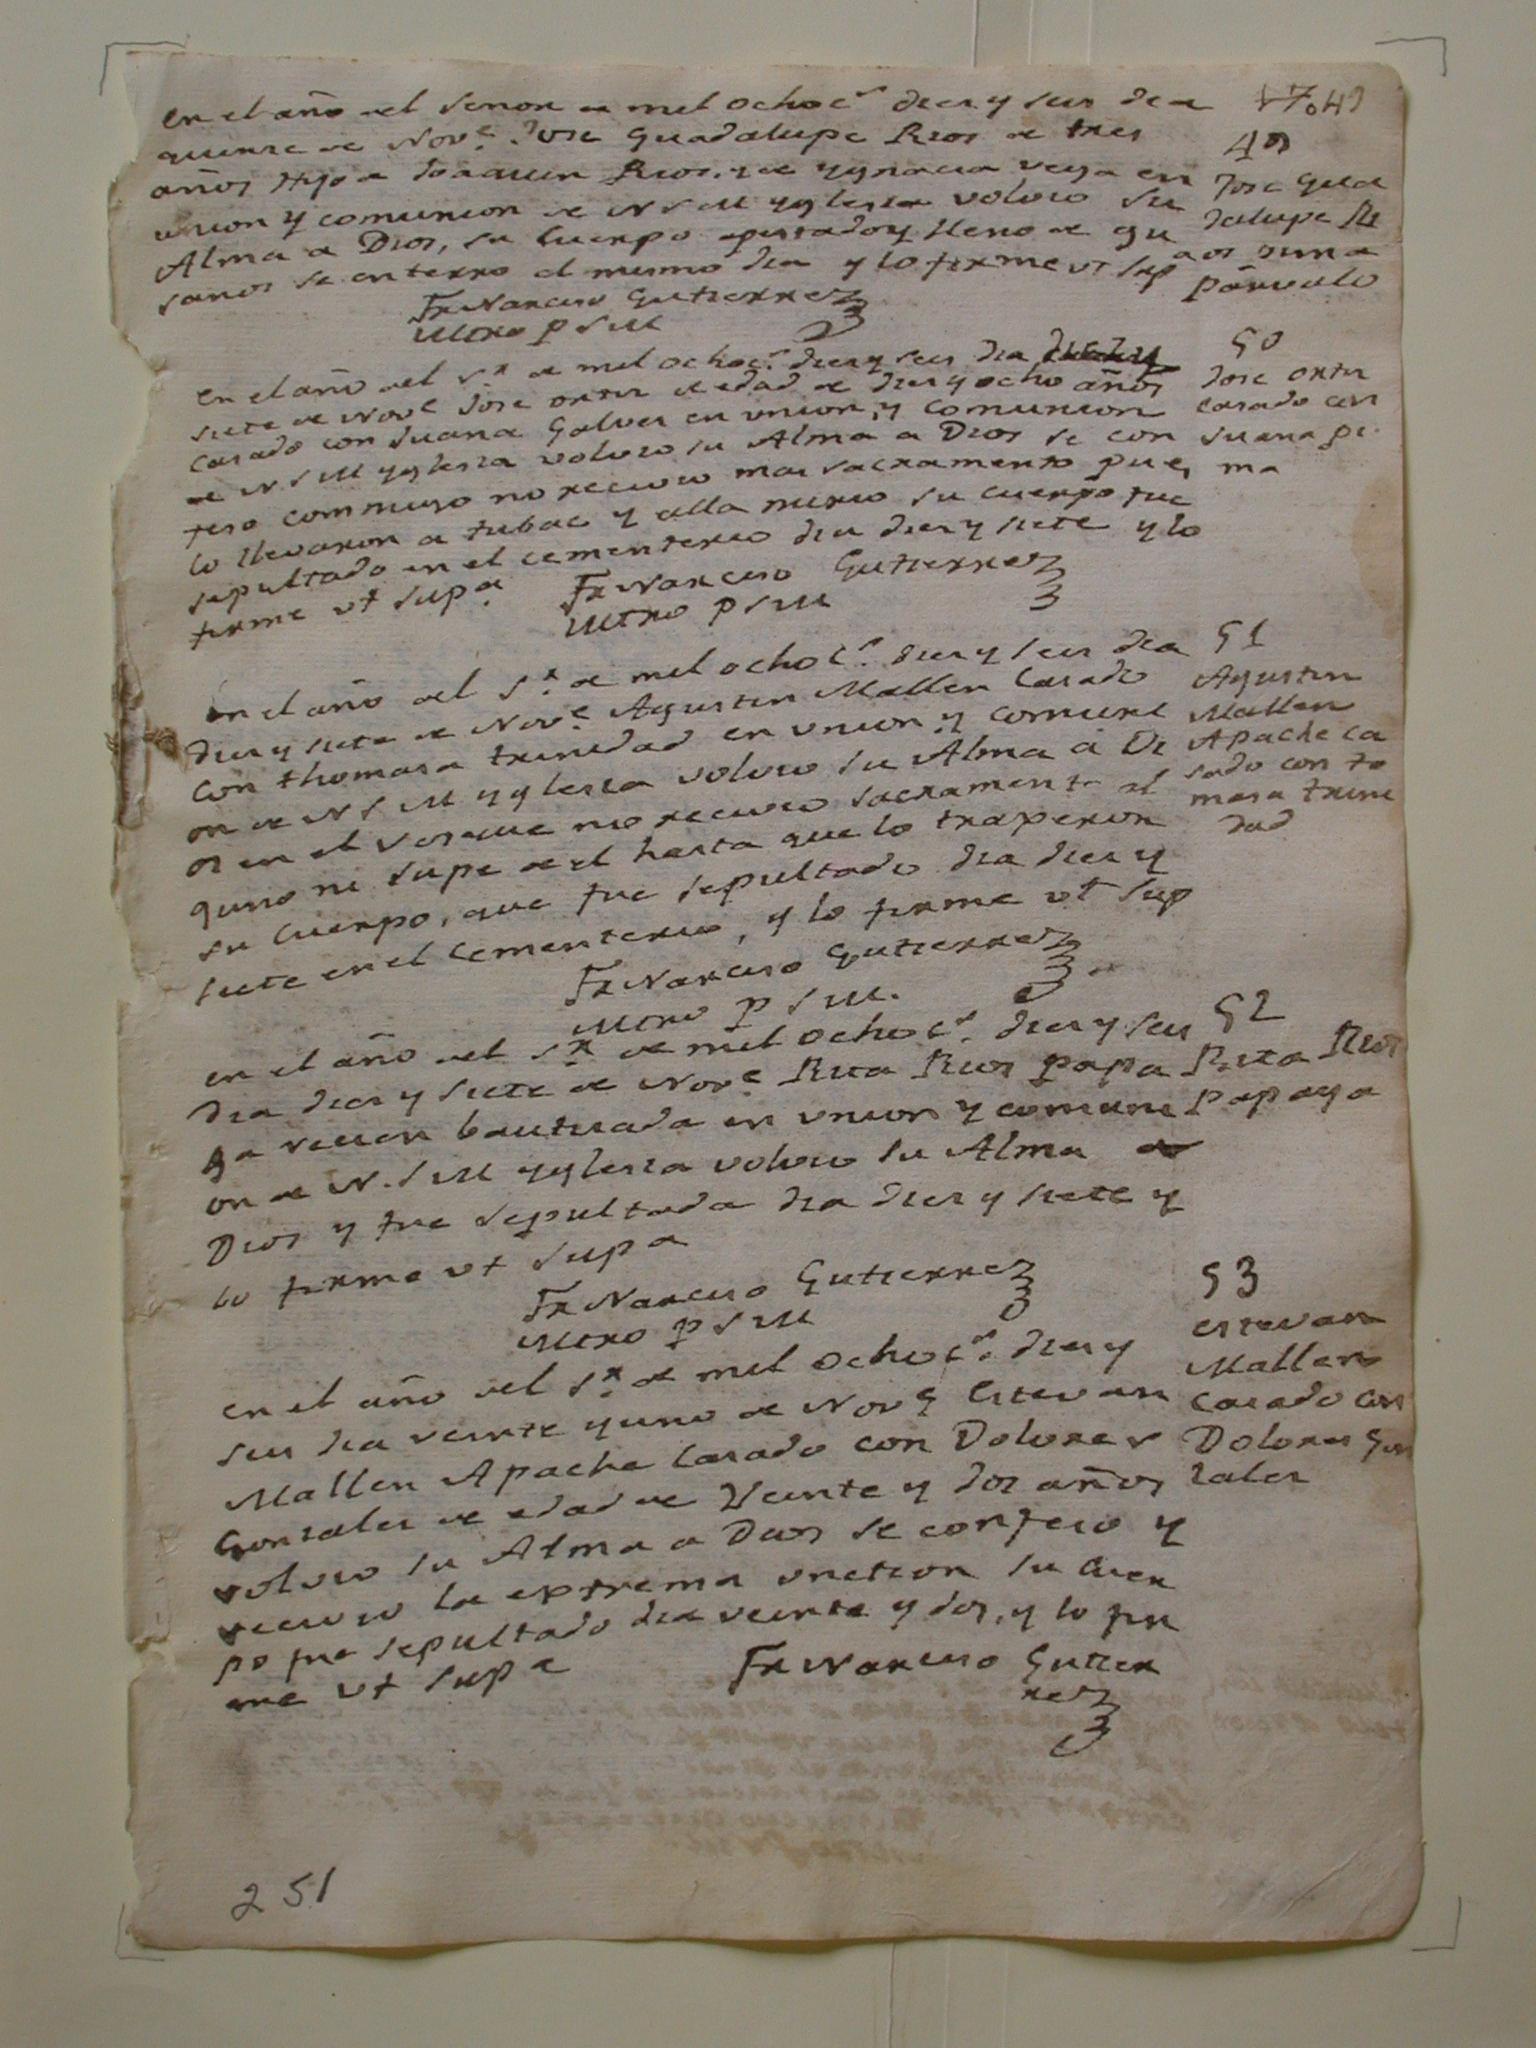 En el año del Senor de mil ocho cs diez y seis dia
17.49
quinse de Nove. Jose Guadalupe Rios de tres
49
años Hijo de Joaquin Rios, y de ygnacia vega en
Jose Gua
union y comunion de N S M yglesia volvio su
dalupe Ri
Alma a Dios, su Cuerpo apestado y lleno de gu
sanos se enterro el mismo dia y lo firme ut sup
parvulo
Fr Narciso Gutierrez
Mtro p S M
50
En el año del Sr. de mil ocho cs. diez y seis dia
siete de Nove Jose ortis de edad de diez y ocho años
Jose ortis
casado con Juana Galves en union, y comunion
casado con
de N S M yglesia volvio su Alma a Dios se con
Juana pi
feso commigo no recivio mas sacramento pues
ma
lo llevaron a tubac y alla murio su cuerpo fue
sepultado en el cementerio dia diez y siete y lo
firme ut supa
Fr Narciso Gutierrez
Mtro p S M
51
En el año del Sr. de mil ocho cs. diez y seis dia
diez y siete de Nove Agustin Mallen Casado
Agustin
Mallen
con thomasa trinidad en union, y comuni
Apache ca
on de N S M yglesia volvio su Alma a Di
sado con to
os en el vosque no recivio sacramento al
masa trini
dad
guno ni supe de el hasta que lo traperon
su Cuerpo, que fue sepultado dia diez y
siete en el Cementerio, y lo firme ut sup
Fr Narciso Gutierrez
Mtro p S M.
52
en el año del Sr. de mil ocho cs. diez y seis
dia diez y siete de Nove Rita Rios papa
Rita Rios
ga recien bautisada en union y comuni
Papaga
on de N. S M yglesia volvio su Alma a
Dios y fue sepultada dia diez y siete y
lo firme ut supa
Fr Narciso Gutierrez
Mtro p S M
53
En el año del Sr. de mil ocho cs. diez y
estevan
Mallen
seis dia veinte y uno de Nove Estevan
casado con
Mallen Apache Casado con Dolores
Dolores Gon
Gonzales de edad de Veinte y dos años
zales
volvio su Alma a Dios se confeso y
recivio la extrema unction su Cuer
po fue sepultado dia veinte y dos, y lo fir
me ut supa
Fr Narciso Gutier
rez
251